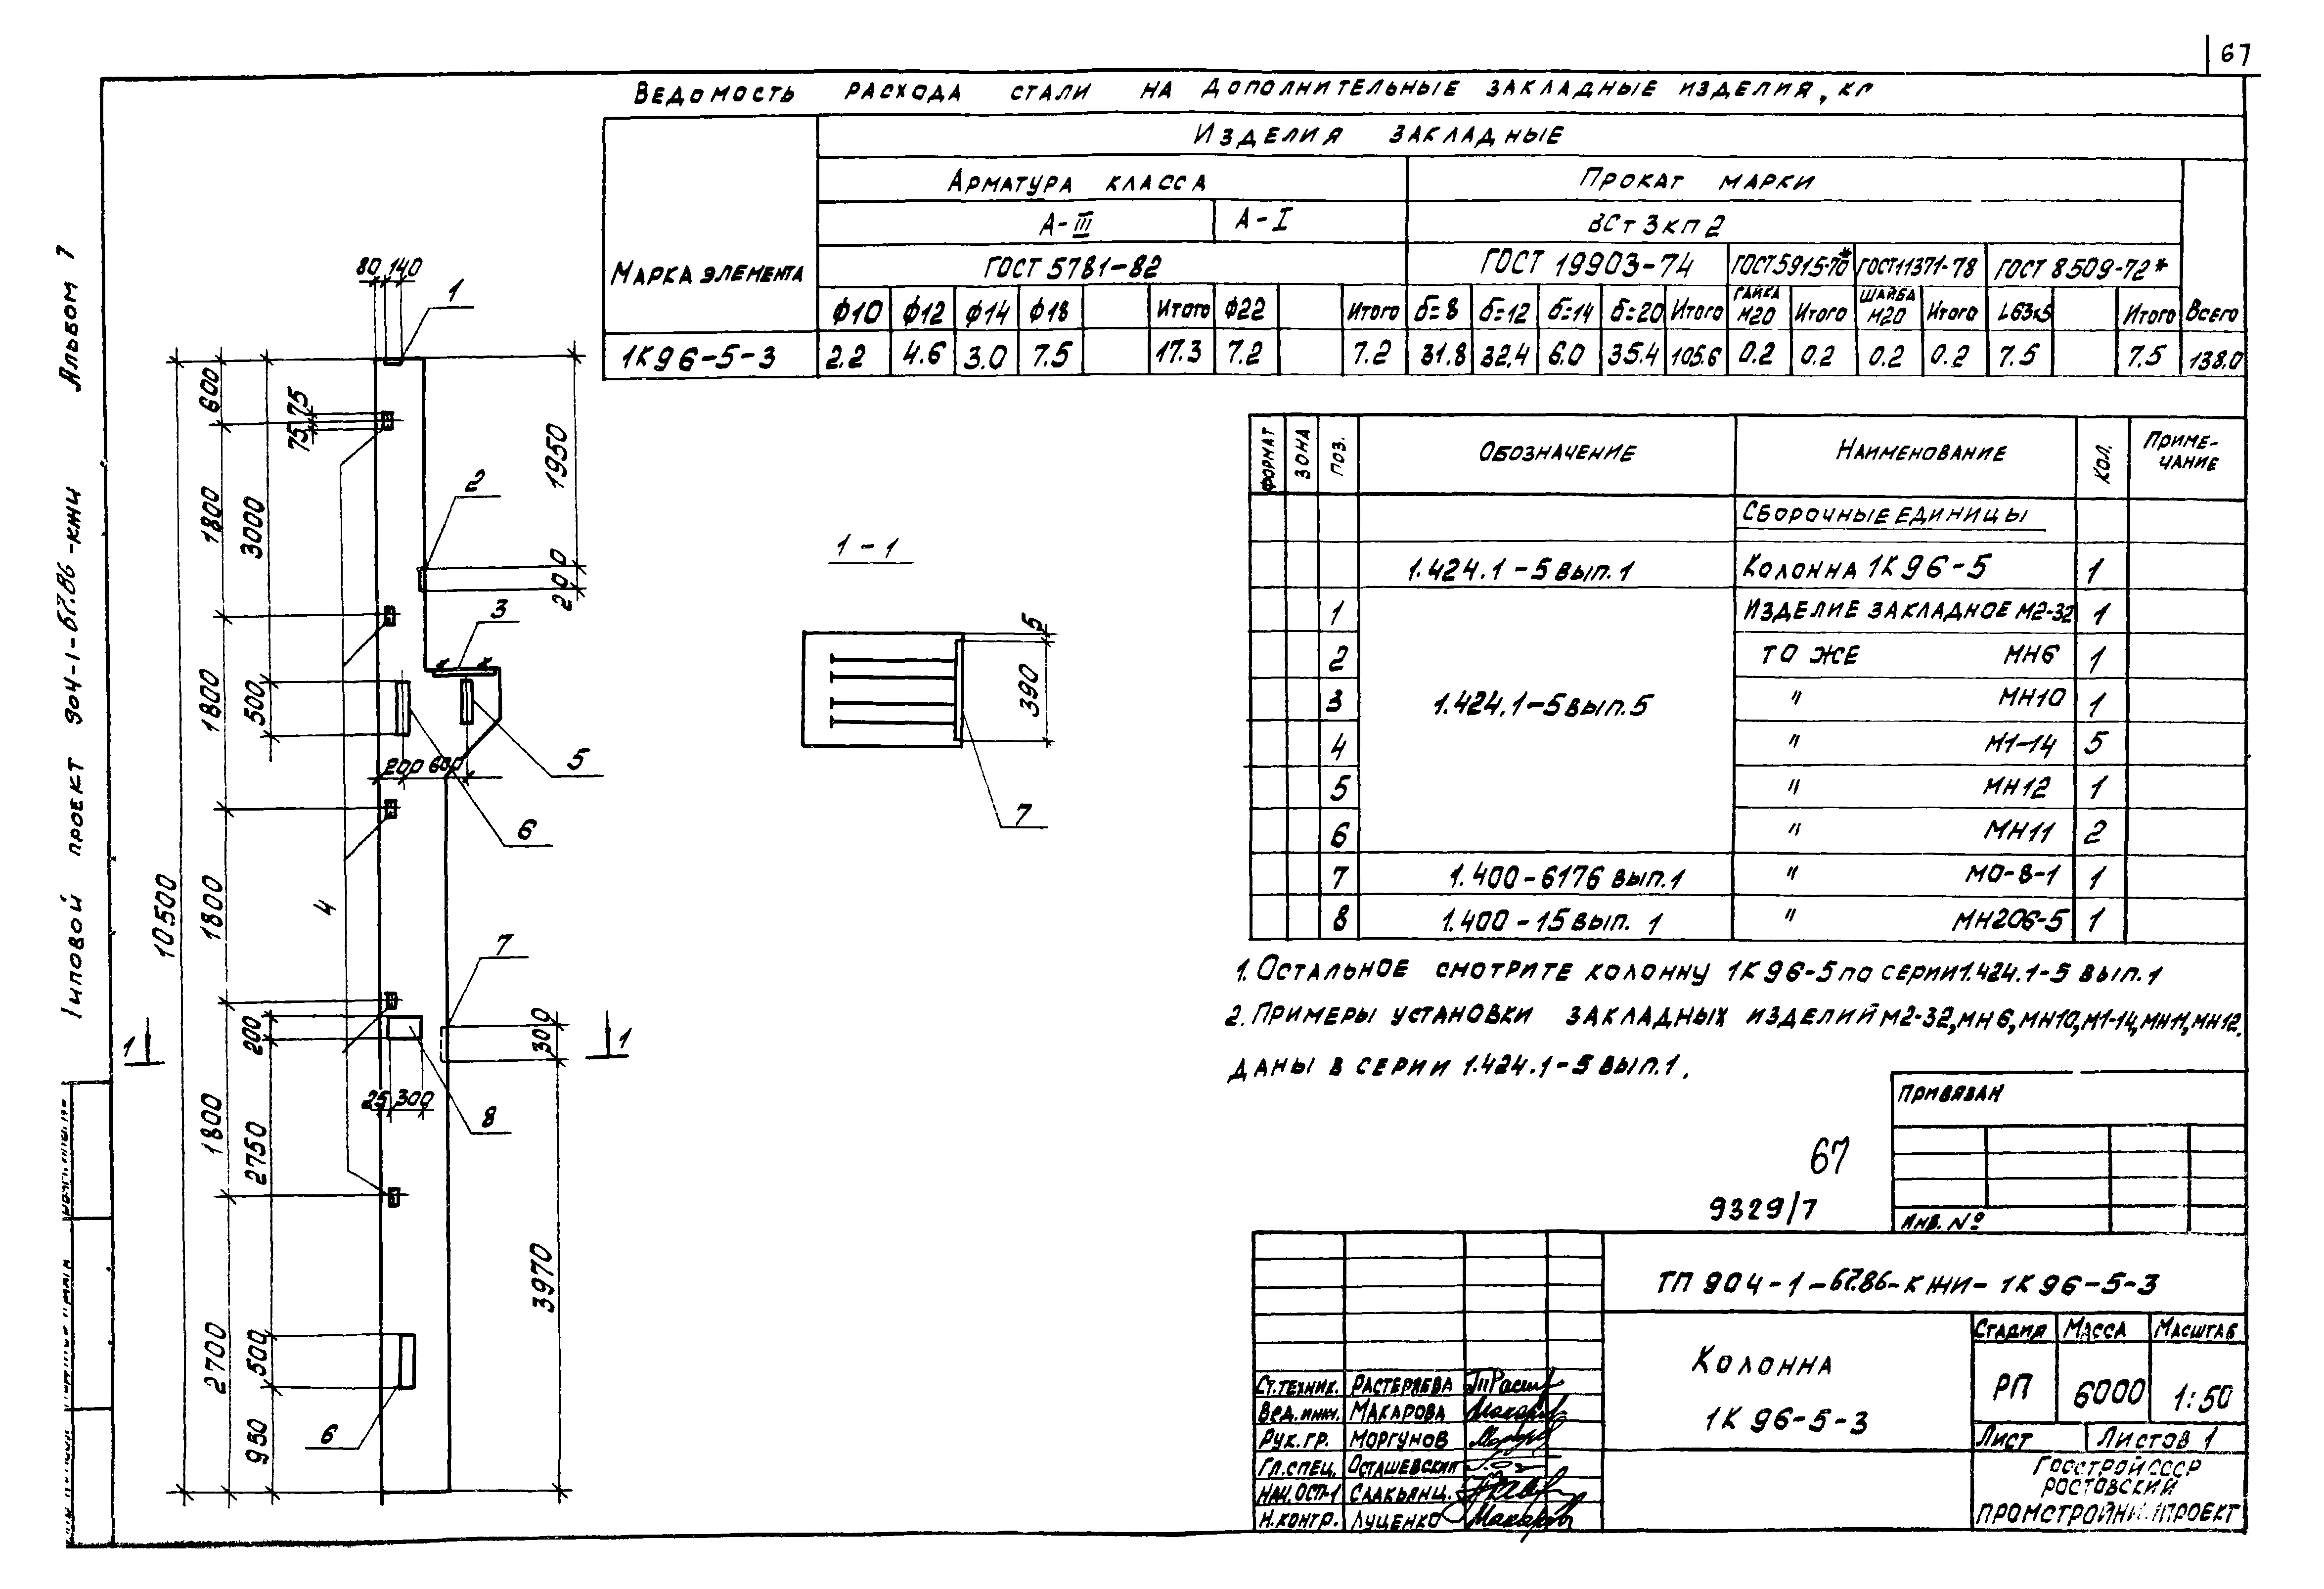 67
Альбом 7
Типовой проект 904-1-67.86-КЖИ
Ведомость расхода стали на дополнительные закладные изделия, кг
Марка элемента
Изделия закладные
Арматура класса
Прокат марки
Всего
А-III
А-I
ВСт3кп2
ГОСТ 5781-82
ГОСТ 19903-74
ГОСТ5915-70*
ГОСТ11371-78
ГОСТ 8509-72*
Ф10 Ф12 Ф14 Ф18 Итого Ф22 Итого б=8 б=12 б=14 б=20 Итого Гайка М20 Итого Шайба М20 Итого L63х5 Итого
1К96-5-3 2.2 4.6 3.0 7.5 17.3 7.2 7.2 31.8 32.4 6.0 35.4 105.6 0.2 0.2 0.2 0.2 7.5 7.5 138.0
80 140
1
600
75 75
1950
1800
3000
2
200
3
1800
500
200 600
5
6
10500
1800
4
7
200
300
1 1
25 300
8
1800
2750
3970
2700
500
950
6
1-1
5
390
7
Формат Зона Поз. Обозначение Наименование Кол. Примечание
Сборочные единицы
1.424.1-5 вып.1 Колонна 1К96-5 1
1 Изделие закладное М2-32 1
2 То же МН6 1
3 1.424.1-5 вып.5 " МН10 1
4 " М1-14 5
5 " МН12 1
6 " МН11 2
7 1.400-6176 вып.1 " М0-8-1 1
8 1.400-15 вып. 1 " МН206-5 1
1. Остальное смотрите колонну 1К96-5 по серии 1.424.1-5 вып.1
2. Примеры установки закладных изделий М2-32, МН6, МН10, М1-14, МН11, МН12.
даны в серии 1.424.1-5 вып.1.
Привязан
Инв. №
67
9329/7
ТП 904-1-67.86-КЖИ-1К96-5-3
Колонна
1К 96-5-3
Стадия Масса Масштаб
РП 6000 1:50
Лист Листов 1
Госстрой СССР
Ростовский
Промстройниипроект
Ст.техник. Растеряева
Вед.инж. Макарова
Рук.гр. Моргунов
Гл.спец. Осташевский
Нач.ОСП-1 Слакьянц.
Н.контр. Луценко